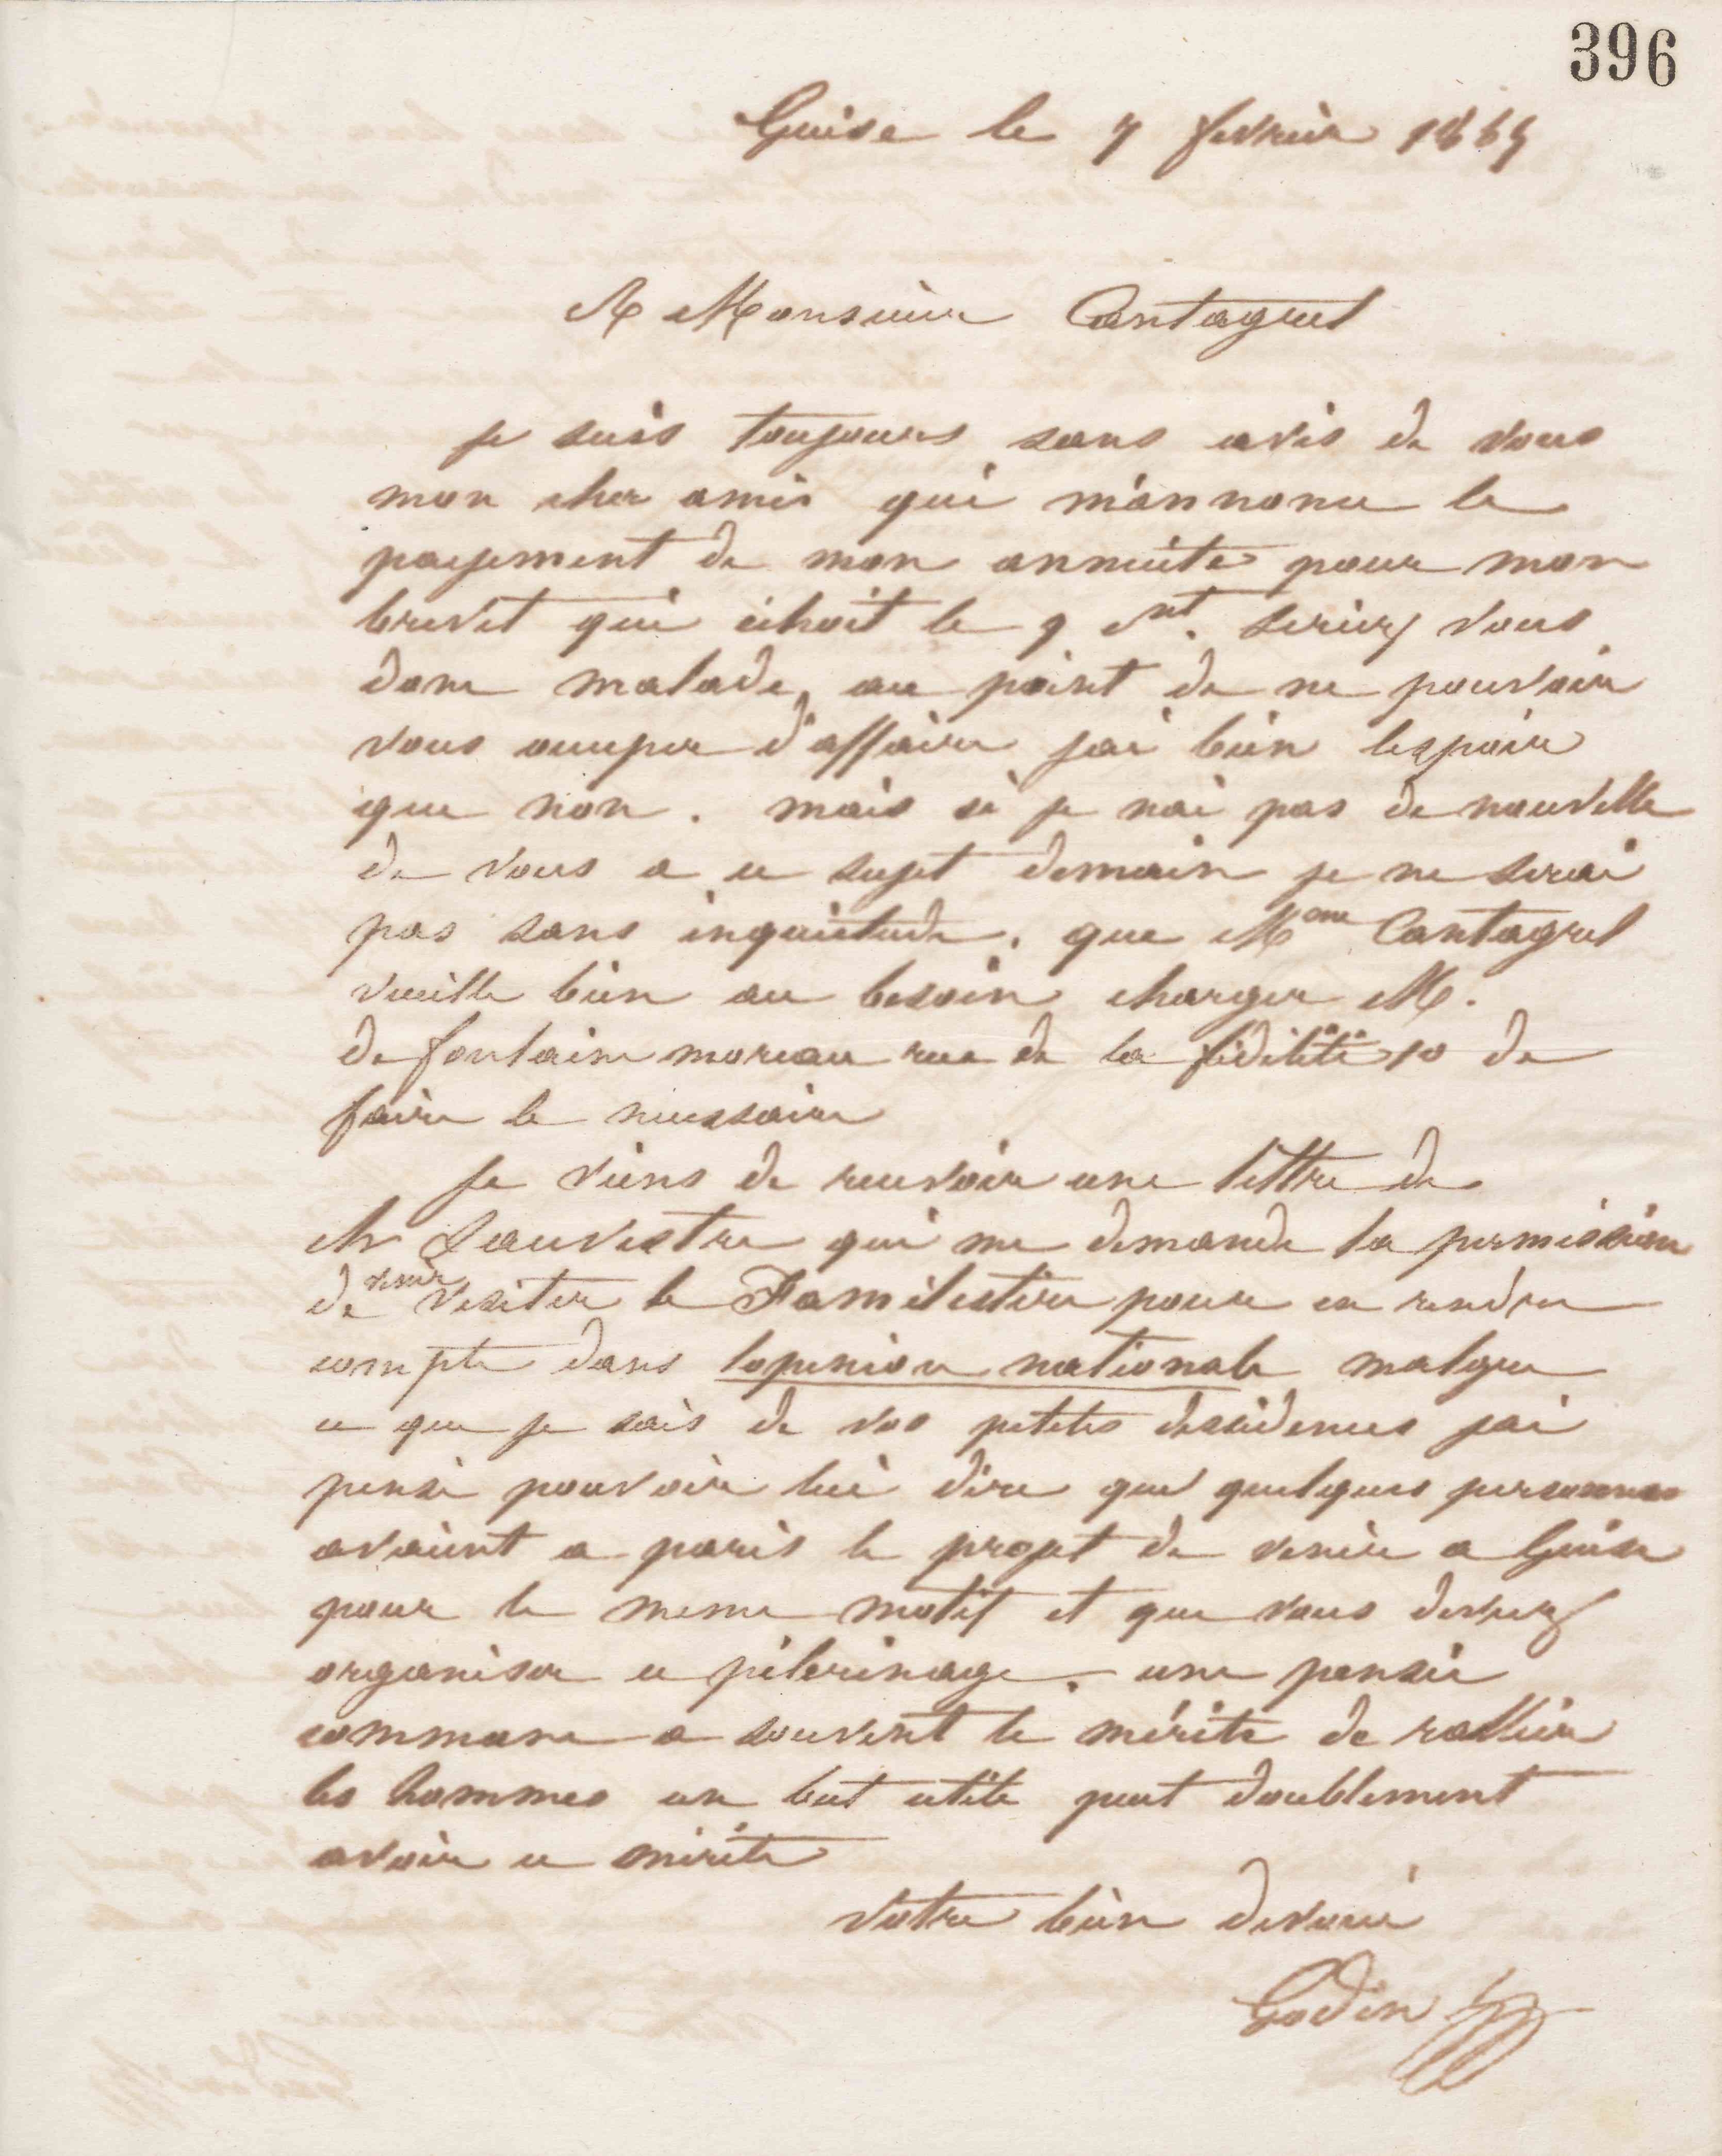 396
Guise le 7 fevrier 1865
A Monsieur Cantagrel
je suis toujours sans avis de vous
mon cher ami qui m'annonce le
payement de mon annuité pour mon
brevet qui échoit le 9 ct. seriez vous
donc malade, au point de ne pouvoir
vous occuper d'affaire j'ai bien l'espoir
que non. mais si je nai pas de nouvelle
de vous a ce sujet demain je ne serai
pas sans inquietude. que Mme Cantagrel
veuille bien au besoin charger M.
de fontaine moreau rue de la fidélité 10 de
faire le necessaire
Je viens de recevoir une lettre de
ch Sauvestre qui me demande la permission
de venir visiter le Familistère pour en rendre
compte dans lopinion nationale malgre
ce que je sais de vos petites dissidences jai
pensé pouvoir lui dire que quelques personnes
avaient a paris le projet de venir a Guise
pour le meme motif et que vous deviez
organiser ce pèlerinage. une pensée
commune a souvent le mérite de rallier
les hommes un but utile peut doublement
avoir ce mérite
votre bien devoué
Godin